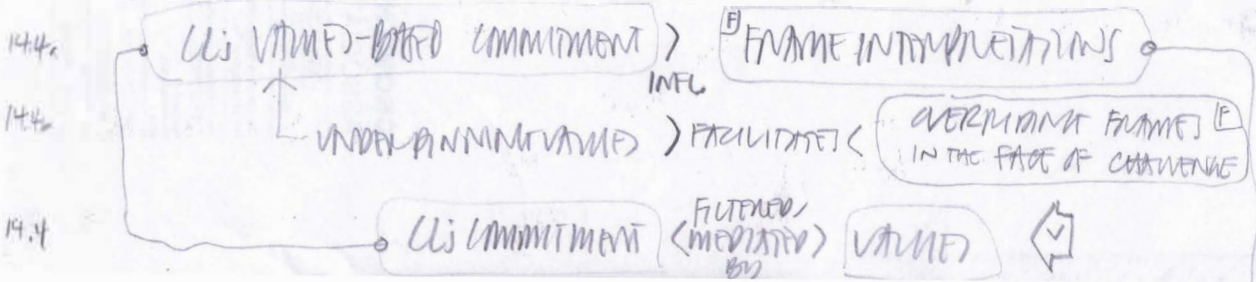 14.4. CLLs VALUES-BASED COMMITMENT > INFL [F] FRAME INTERPRETATIONS
14.4. UNDERPINNING VALUES > FACILITATES < OVERRIDING FRAMES [F]
IN THE FACE OF CHALLENGE
14.4 CLLs COMMITMENT < FILTERED/
MEDIATED >
BY
VALUES